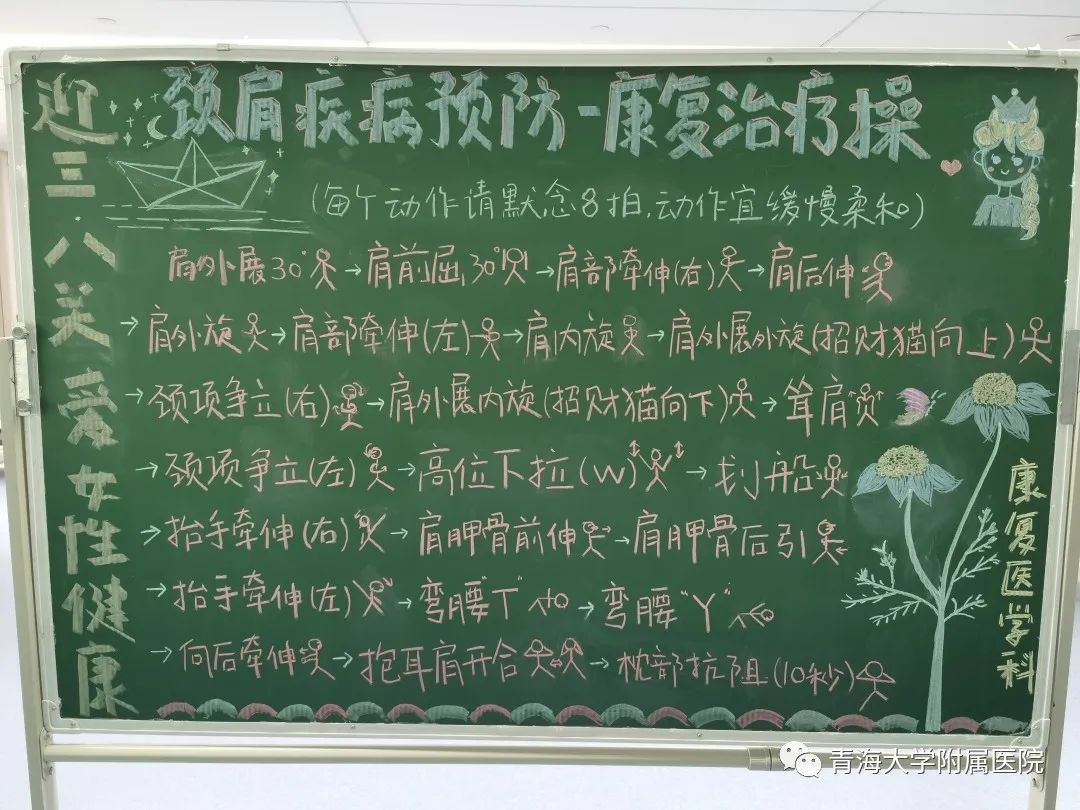 迎三·八关爱女性健康
颈肩疾病预防-康复治疗操
(每个动作请默念8拍,动作宜缓慢柔和)
肩外展30°→肩前屈30°→肩部牵伸(右)→肩后伸
→肩外旋→肩部牵伸(左)→肩内旋→肩外展外旋(招财猫向上)
→颈项争立(右)→肩外展内旋(招财猫向下)→耸肩
→颈项争立(左)→高位下拉(W)→划船
→抬手牵伸(右)→肩胛骨前伸→肩胛骨后引
→抬手牵伸(左)→弯腰"T"→弯腰"Y"
→向后牵伸→抱耳肩开合→枕部抗阻(10秒)
康复医学科
青海大学附属医院